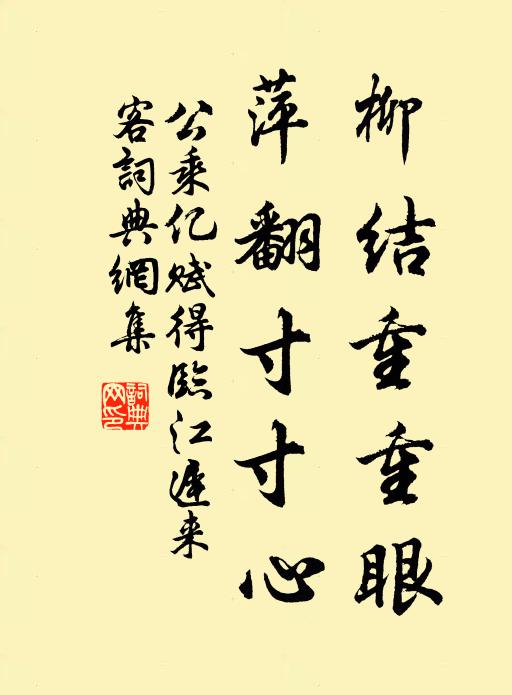 柳结重重眼
萍翻寸寸心
公乘亿赋得临江迟来
客词典网集
词典网印